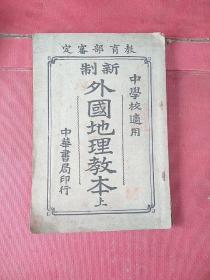 教育部審定
中學校適用
新制
外國地理教本 上
中華書局印行